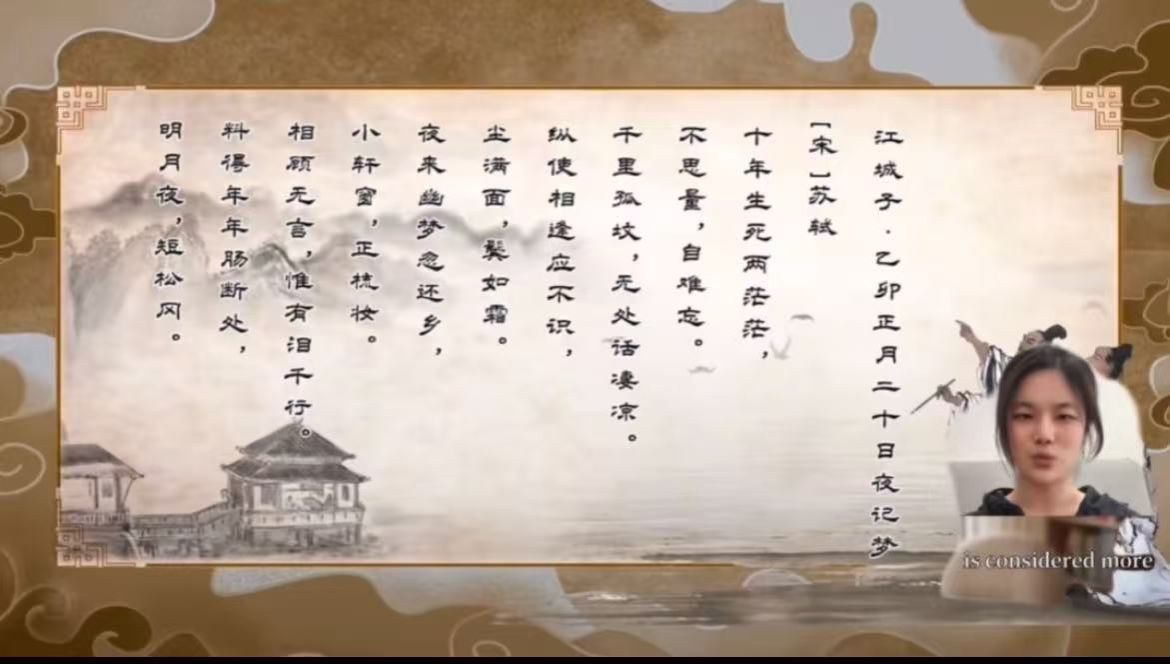 江城子·乙卯正月二十日夜记梦
［宋］苏轼
十年生死两茫茫，
不思量，自难忘。
千里孤坟，无处话凄凉。
纵使相逢应不识，
尘满面，鬓如霜。
夜来幽梦忽还乡，
小轩窗，正梳妆。
相顾无言，惟有泪千行。
料得年年肠断处，
明月夜，短松冈。
is considered more